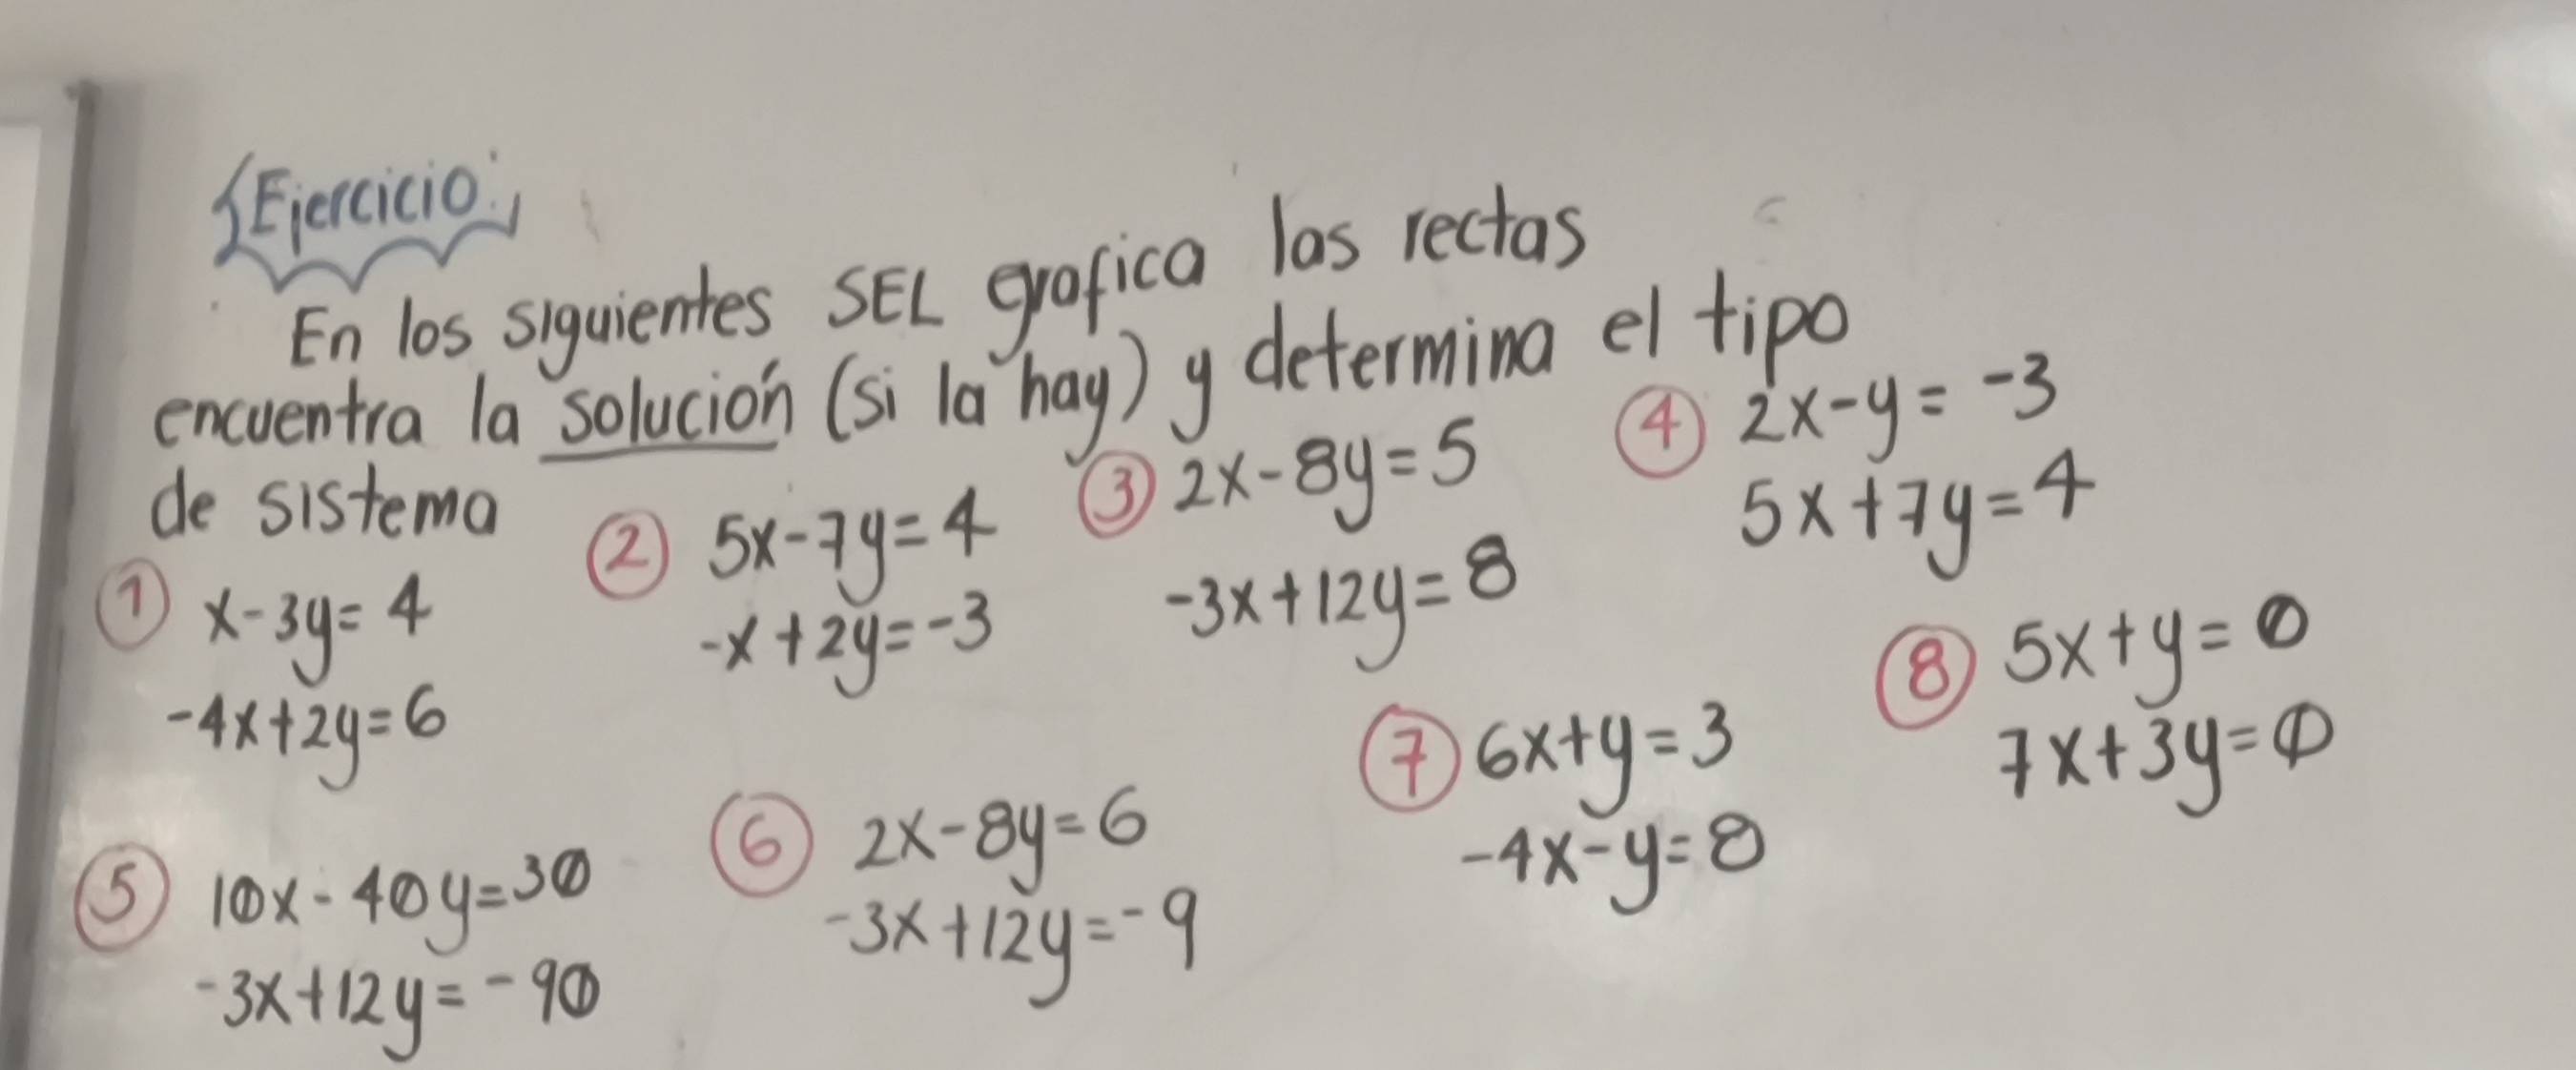 Ejercicio:
En los siguientes SEL grafica las rectas
encuentra la solución (si la hay) y determina el tipo
de sistema
① x-3y=4
-4x+2y=6
② 5x-7y=4
-x+2y=-3
③ 2x-8y=5
-3x+12y=8
④ 2x-y=-3
5x+7y=4
⑤ 10x-40y=30
-3x+12y=-90
⑥ 2x-8y=6
-3x+12y=-9
⑦ 6x+y=3
-4x-y=8
⑧ 5x+y=0
7x+3y=0